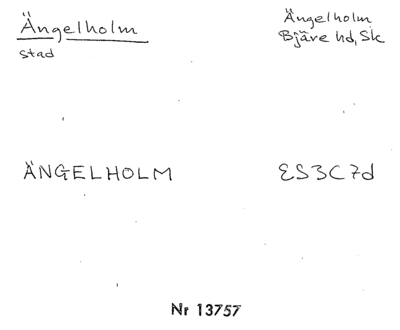 Ängelholm
stad
Ängelholm
Bjäre hd, Sk
ÄNGELHOLM
ES3C7d
Nr 13757